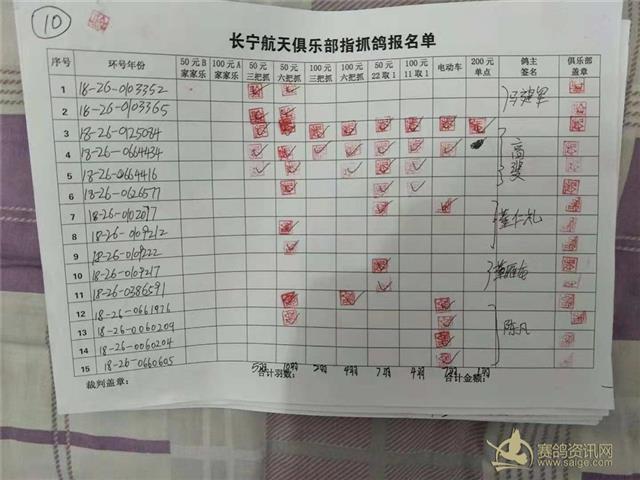 10
长宁航天俱乐部指抓鸽报名单
序号 环号年份 50元B家家乐 100元A家家乐 50元三把抓 50元六把抓 100元三把抓 100元六把抓 50元22取1 100元11取1 电动车 200元单点 鸽主签名 俱乐部盖章
1 18-26-0103352
2 18-26-0103365
3 18-26-0925084
4 18-26-0664434 高
5 18-26-0664416 斐
6 18-26-0626577
7 18-26-0102077
8 18-26-0109212
9 18-26-0109222
10 18-26-0107217
11 18-26-0386591
12 18-26-0661976
13 18-26-0060209 陈凡
14 18-26-0060204
15 18-26-0660605
5羽 10羽 2羽 4羽 7羽 4羽 7羽 1羽
裁判盖章: 合计羽数: 合计金额:
赛鸽资讯网
www.saige.com